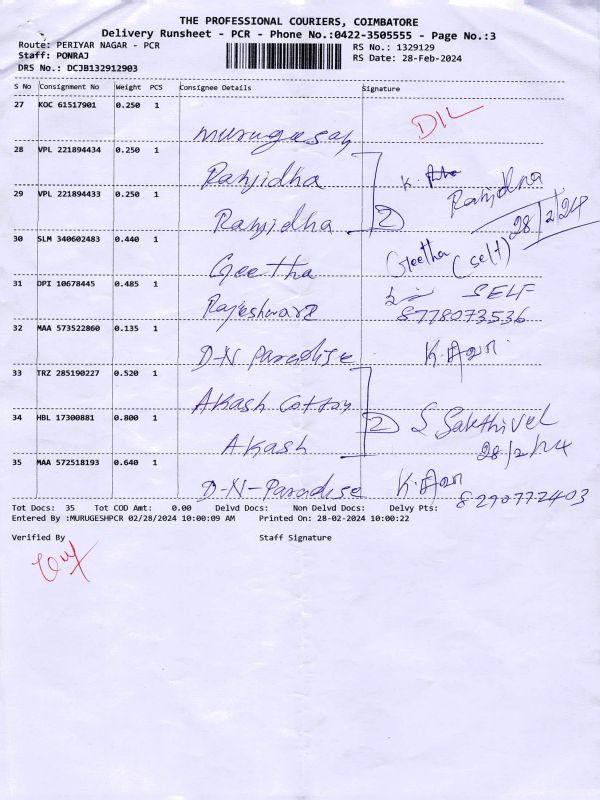 THE PROFESSIONAL COURIERS, COIMBATORE
Delivery Runsheet - PCR - Phone No.:0422-3505555 - Page No.:3
Route: PERIYAR NAGAR - PCR RS No.: 1329129
Staff: PONRAJ RS Date: 28-Feb-2024
DRS No.: DCJB132912903
S No Consignment No Weight PCS Consignee Details Signature
27 KOC 61517901 0.250 1
Murugesan DIL
28 VPL 221894434 0.250 1
Ranjidha K. Ranjidha
29 VPL 221894433 0.250 1
Ranjidha 2 28/2/24
30 SLM 340602483 0.440 1
Geetha Geetha (self)
31 DPI 10678445 0.485 1
Rajeshwara SELF
8778073536
32 MAA 573522860 0.135 1
D-N Paradise
33 TRZ 285190227 0.520 1
Akash Cottan
34 HBL 17300881 0.800 1 2 S Sakthivel
Akash 28/2/24
35 MAA 572518193 0.640 1
D-N-Paradise 8290772403
Tot Docs: 35 Tot COD Amt: 0.00 Delvd Docs: Non Delvd Docs: Delvy Pts:
Entered By :MURUGESHPCR 02/28/2024 10:00:09 AM Printed On: 28-02-2024 10:00:22
Verified By Staff Signature